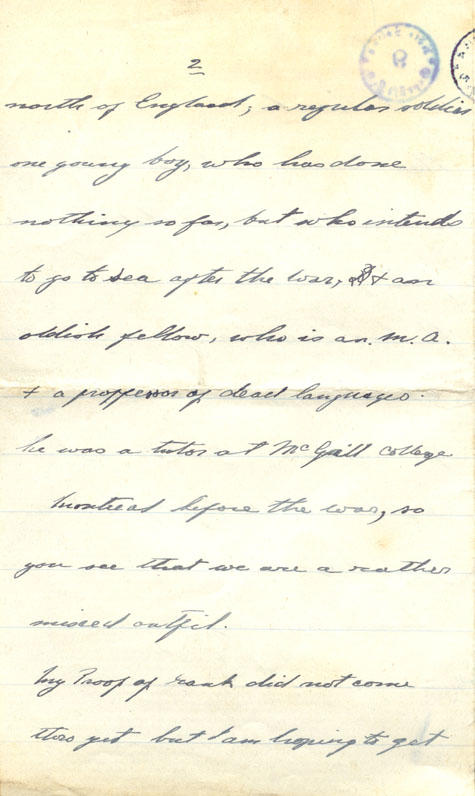 2
north of England; a regular soldier
one young boy, who has done
nothing so far, but who intends
to go to sea after the war, & an
oldish fellow, who is an. M.A.
+ a proffessor of dead languages.
he was a tutor at McGill College
Montreal before the war, so
you see that we are a rather
mixed outfit.
My Proof of rank did not come
thro yet but I am hoping to get